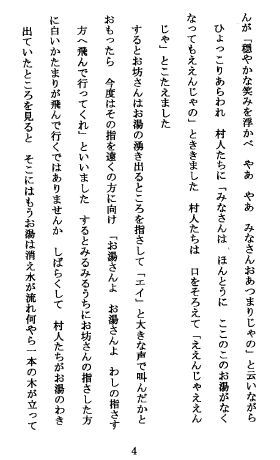 んが「穏やかな笑みを浮かべ　やあ　やあ　みなさんおあつまりじゃの」と云いながら
ひょっこりあらわれ　村人たちに「みなさんは、ほんとうに　ここのこのお湯がなく
なってもええんじゃの」とききました　村人たちは　口をそろえて「ええんじゃええん
じゃ」とこたえました
するとお坊さんはお湯の湧き出るところを指さして「エイ」と大きな声で叫んだかと
おもったら　今度はその指を遠くの方に向け　「お湯さんよ　お湯さんよ　わしの指さす
方へ飛んで行ってくれ」といいました　するとみるみるうちにお坊さんの指さした方
に白いかたまりが飛んで行くではありませんか　しばらくして　村人たちがお湯のわき
出ていたところを見ると　そこにはもうお湯は消え水が流れ何やら一本の木が立って
4